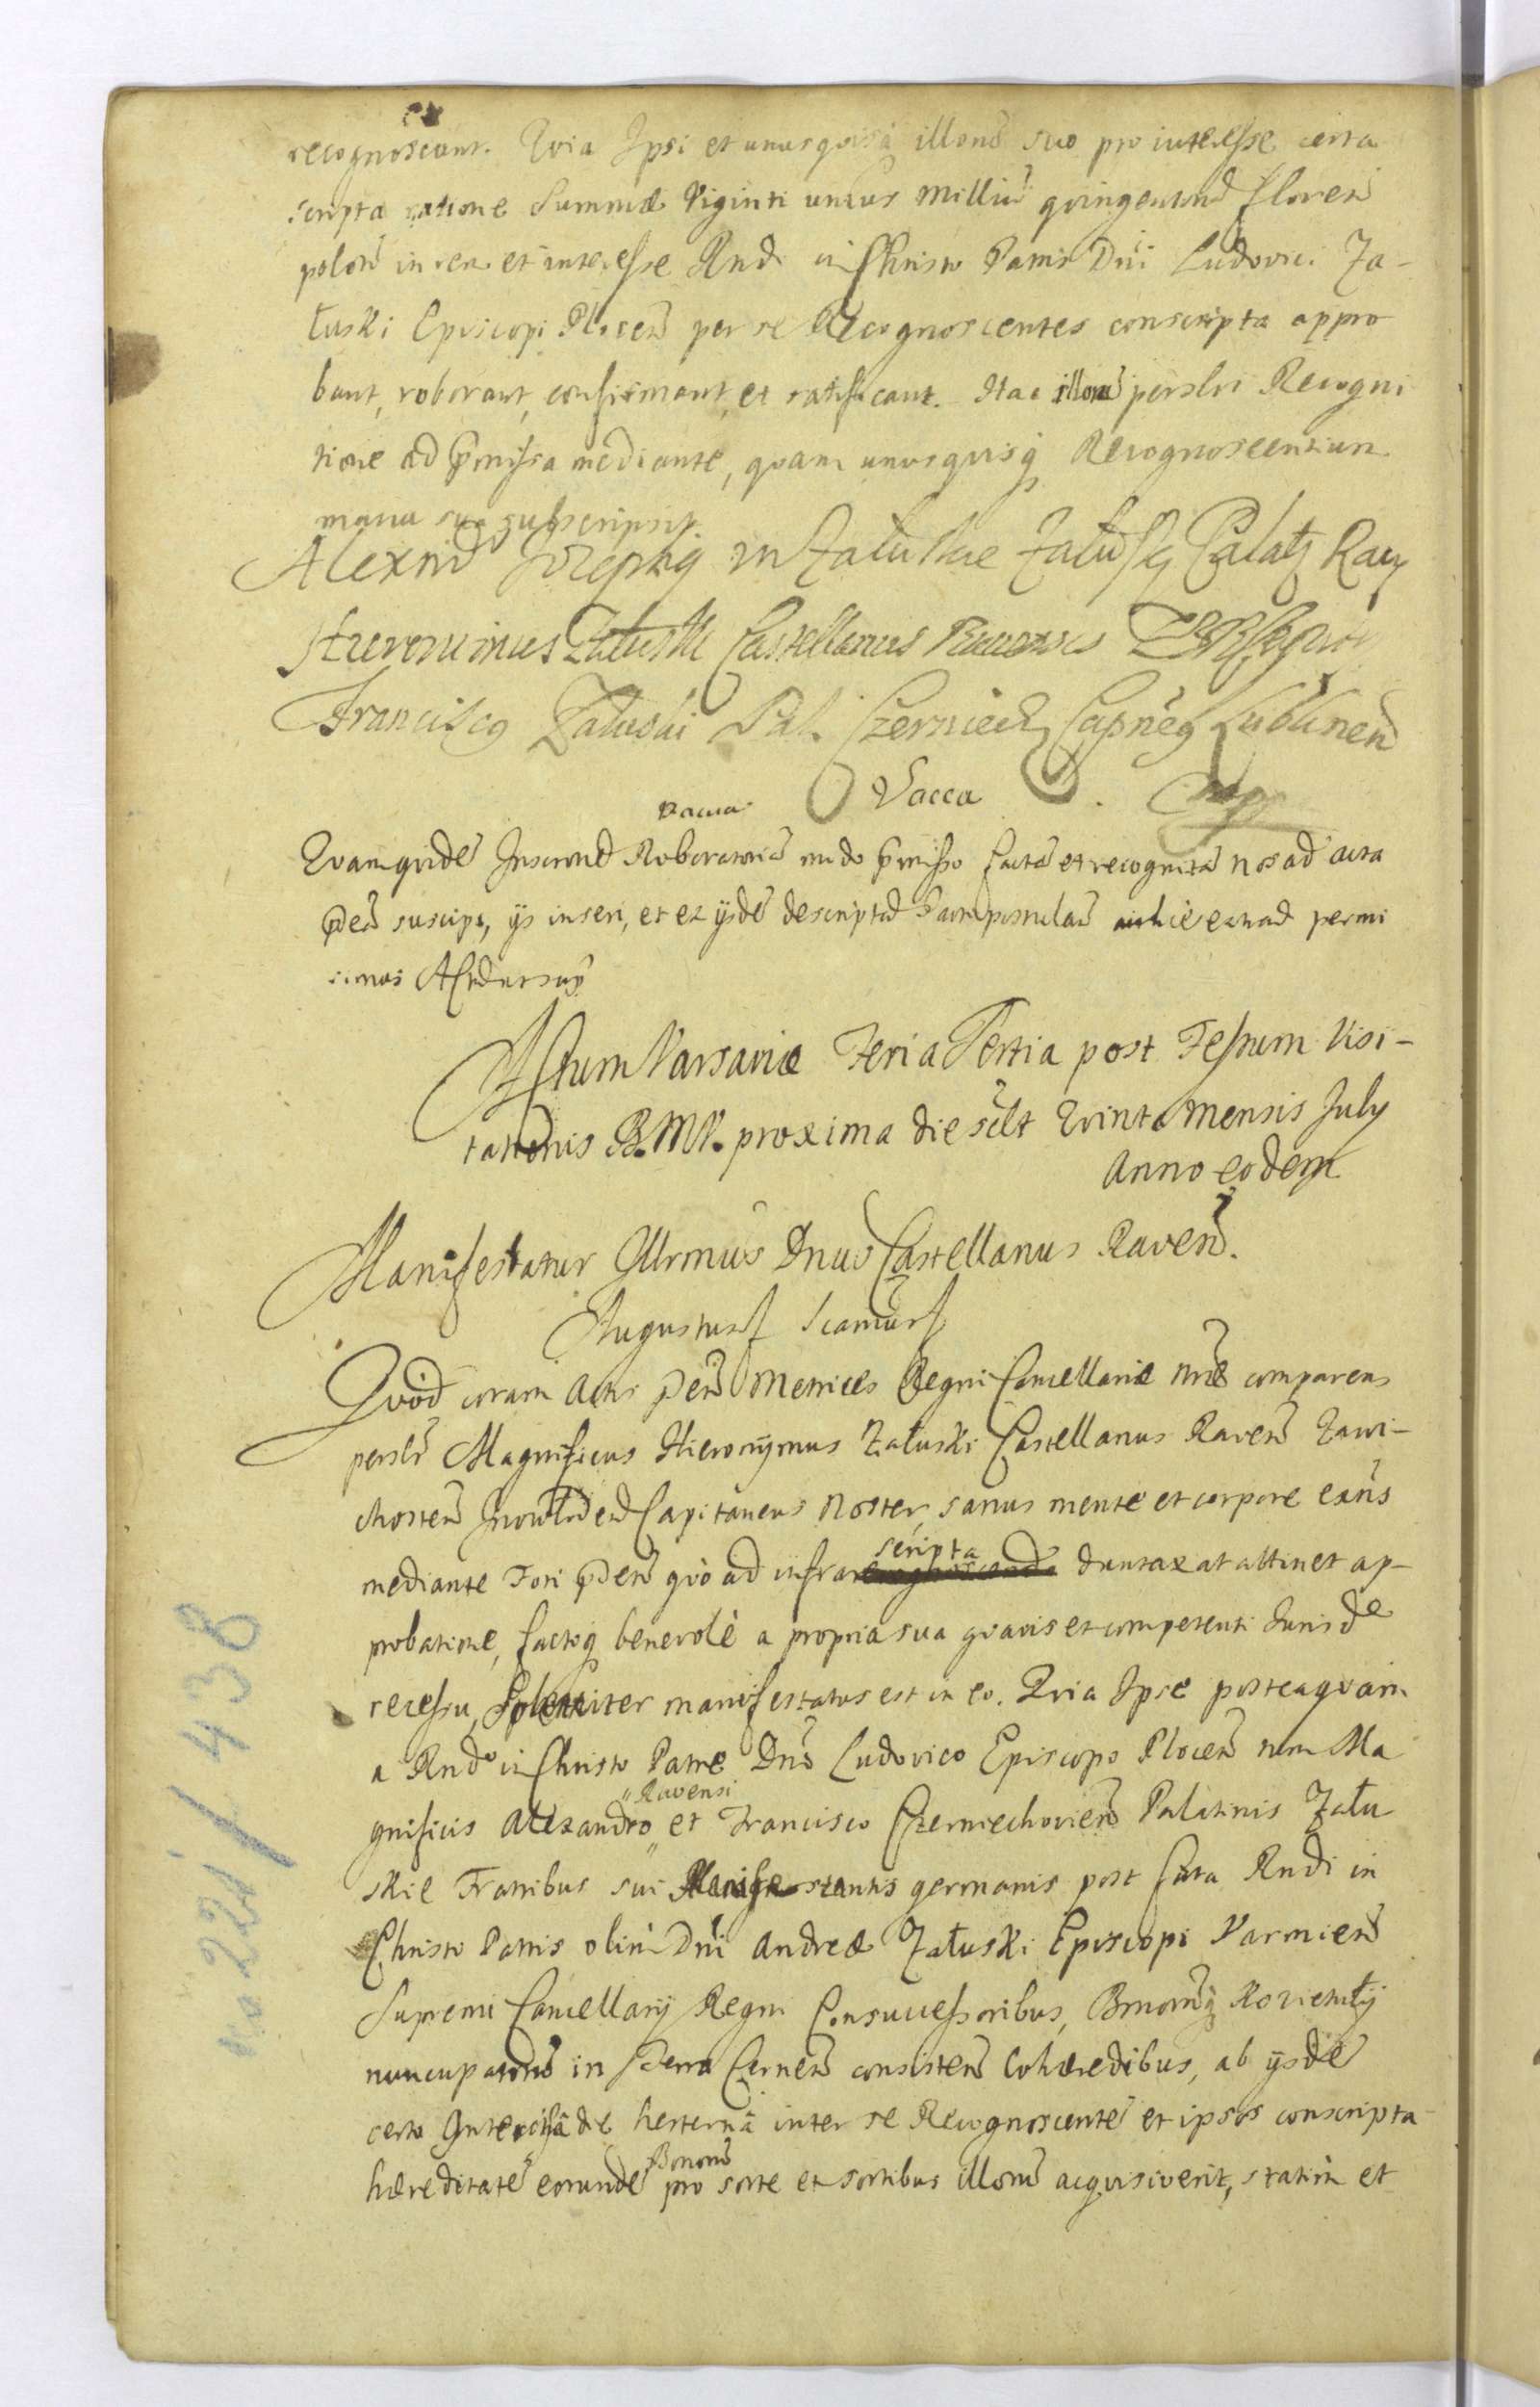 recognoscunt. Qvia Ipsi et unusqvisq illorũ suo pro interesse certa
scripta ratione Summæ Viginti unius Milliũ qvingentorũ floreñ
poloñ in rem et interesse Rndi in Christo Patris Dñi Ludovici Za-
łuski Episcopi Ploceñ per se Recognoscentes conscripta appro
bant, roborant, confirmant, et ratificant. Hac illorũ persłri Recogni
tione ad p̃missa mediante, qvam unusqvisq Recognoscentium
manu sua subscripsit.
Alexnd Josephq in Załuskie Załuski Palat Rav
Hieronimus Załuski Castellanus Ravensis
Franciscq Załuski Pal. Czerniech Capneq Lublinen
Vacca
Qvamqvidẽ Roboratoriã mdo p̃misso factã et recognitã nos ad acta
p̃señ suscipi, ijs inseri, et ex ijsdẽ descriptã Parti postulañ extrad permi
simus
Actum Varsaviæ Feria Tertia post Festum Visi-
tationis B.M.V. proxima die sclt Qvinta Mensis July
Anno eodem
Manifestatur Illrmus Dnus Castellanus Raveñ.
Qvod coram Actis p̃señ Metrices Regni Cancellariæ Mrıs comparens
persłr Magnificus Hieronymus Załuski Castellanus Raveñ Zawi-
chosteñ Capitaneus Noster, sanus mente et corpore exñs
mediante Fori p̃señ qvò ad infra scripta duntaxat attinet ap-
probatione, factoq benevolè a propria sua qvavis et competenti Juris de
recessu, Solenniter manifestatus est in eo. Qvia Ipse posteaqvam
a Rndo in Christo Patre Dno Ludovico Episcopo Ploceñ tum Ma
gnificis Alexandro Ravensi et Francisco Czerniechovieñ Palatinis Zału
skie Fratribus sui Manifestantis germanis post fata Rndi in
Christo Patris olim Dni Andreæ Załuski Episcopi Varmieñ
Supremi Cancellarij Regni Consuccessoribus, Bnorũq
nuncupatorũ in Terra Cerneñ consisteñ Cohæredibus, ab ijsdẽ
certa hesternâ inter se Recognoscentẽ et ipsos conscripta
hæreditatẽ eorundẽ Bonorũ pro sorte et sortibus illorũ acqvisiverit, statim et
221/438